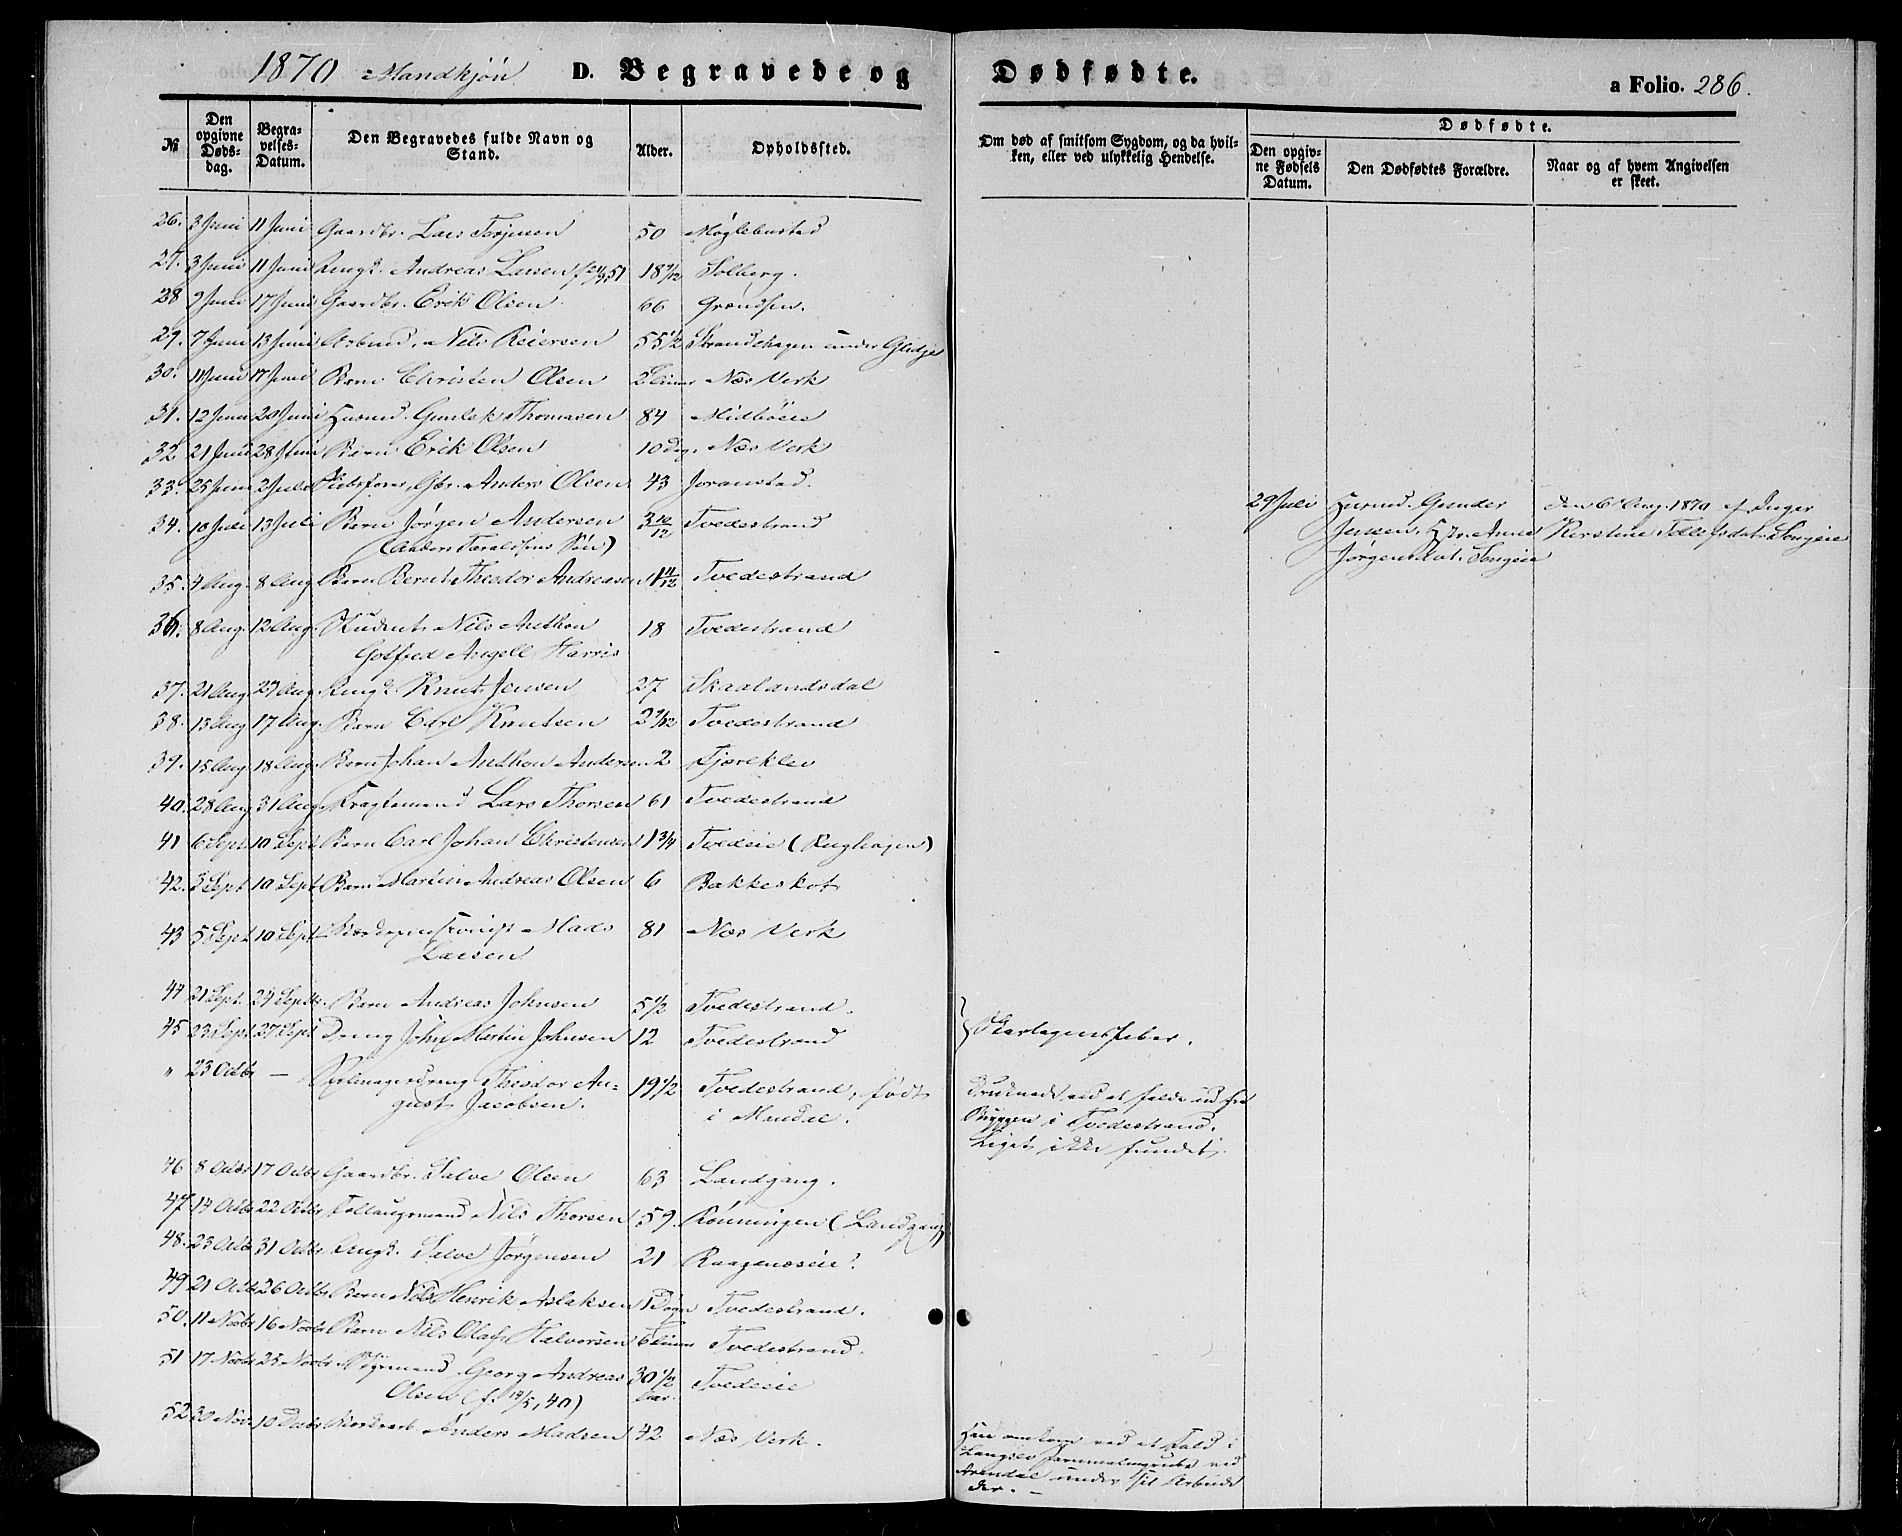 1870 Mandkjøn D. Begravede og Dødfødte. a Folio. 286.
№ Den opgivne Døds-dag. Begra-velses-Datum. Den Begravedes fulde Navn og Stand. Alder. Opholdssted. Om død af smitsom Sygdom, og da hvil-ken, eller ved ulykkelig Hendelse. Dødfødte.
Den opgiv-ne Fødsels Datum. Den Dødfødtes Forældre. Naar og af hvem Angivelsen er skeet.
26. 3 Juni 11 Juni Gaardbr. Lars Terjesen 50 Møglebustad
27. 3 Juni 11 Juni Ungk. Andreas Larsen 18 9/12 Solberg.
28 9 Juni 17 Juni Gaardbr. Erik Olsen 66
29. 7 Juni 13 Juni Arbmd. Nils Reiersen 55 1/2 Strandehagen under
30. 11 Juni 17 Juni Barn Christen Olsen 2 Timer Næs Verk
31. 12 Juni 20 Juni Husmd. Gunlek Thomasen 84 Midbøeie
32 21 Juni 28 Juni Barn Erik Olsen 10 Dg. Næs Verk
33. 25 Juni 2 Juli Gbr. Anders Olsen 43 Joranstad.
29 Juli Husmd. Gunder den 6 Aug. 1870 af Inger
34. 10 Juli 13 Juli Barn Jørgen Andersen 3 10/12 Tvedestrand
Jensen, Hstr. Anne Kerstine Tellefsdat. Songeie
(Anders Taraldsens Søn)
Jørgensdat. Songeie
35. 4 Aug. 8 Aug Barn Bernt Theodor Andreasen 1 11/12 Tvedestrand
36. 8 Aug. 12 Aug. Student Nils Anthon 18 Tvedestrand
Gotfred Angell Harris
37. 21 Aug 27 Aug. Ungk. Knut Jensen 27 Skaalandsdal
38. 13 Aug 17 Aug. Barn Carl Knutsen 2 9/12 Tvedestrand
39. 15 Aug. 18 Aug. Barn Johan Anthon Andersen 2 Fjæreklev
40. 28 Aug 31 Aug Fragtemand Lars Thorsen 61 Tvedestrand
41 6 Sept. 10 Sept Barn Carl Johan Christensen 1 3/4 Tvedeeie (Rughagen)
42. 3 Sept. 10 Sept. Barn Martin Andreas Olsen 6 Bakkeskot
43 5 Sept. 10 Sept. Mads 81 Næs Verk
Larsen
44 21 Sept. 24 Septb. Barn Andreas Johnsen 5 1/2 Tvedestrand.
45 23 Sept 27 Sept Dreng John Martin Johnsen 12 Tvedestrand Skarlagensfeber.
" 23 Octbr — Theodor Au= 19 1/2 Tvedestrand, født Druknede ved at falde ud fra
gust Jacobsen. i Mandal. Bryggen i Tvedestrand.
Liget ikke fundet.
46 8 Octbr 17 Octbr Gaardbr. Salve Olsen 63 Landgang.
47 14 Octbr 22 Octbr Føllaugsmand Nils Thorsen 59. Rønningen (Landgang)
48. 23 Octb 31 Octbr Ungk. Salve Jørgensen 21
49 21 Octbr 26 Octbr Barn Nils Henrik Aslaksen 1 Døgn Tvedestrand.
50. 11 Novbr 16 Novbr Barn Nils Olaf Halvorsen 6 Timer Tvedestrand.
51 17 Novbr 25 Novbr Georg Andreas 30 1/2 Tvedeeie
Olsen (f. 14/5, 40) Aar.
52 30 Nov. 10 Decbr Anders Madsen 42 Næs Verk.
Han omkom ved et Fald i
Langsev Jernmalmgrube ved
Arendal under sit Arbeide
der. —